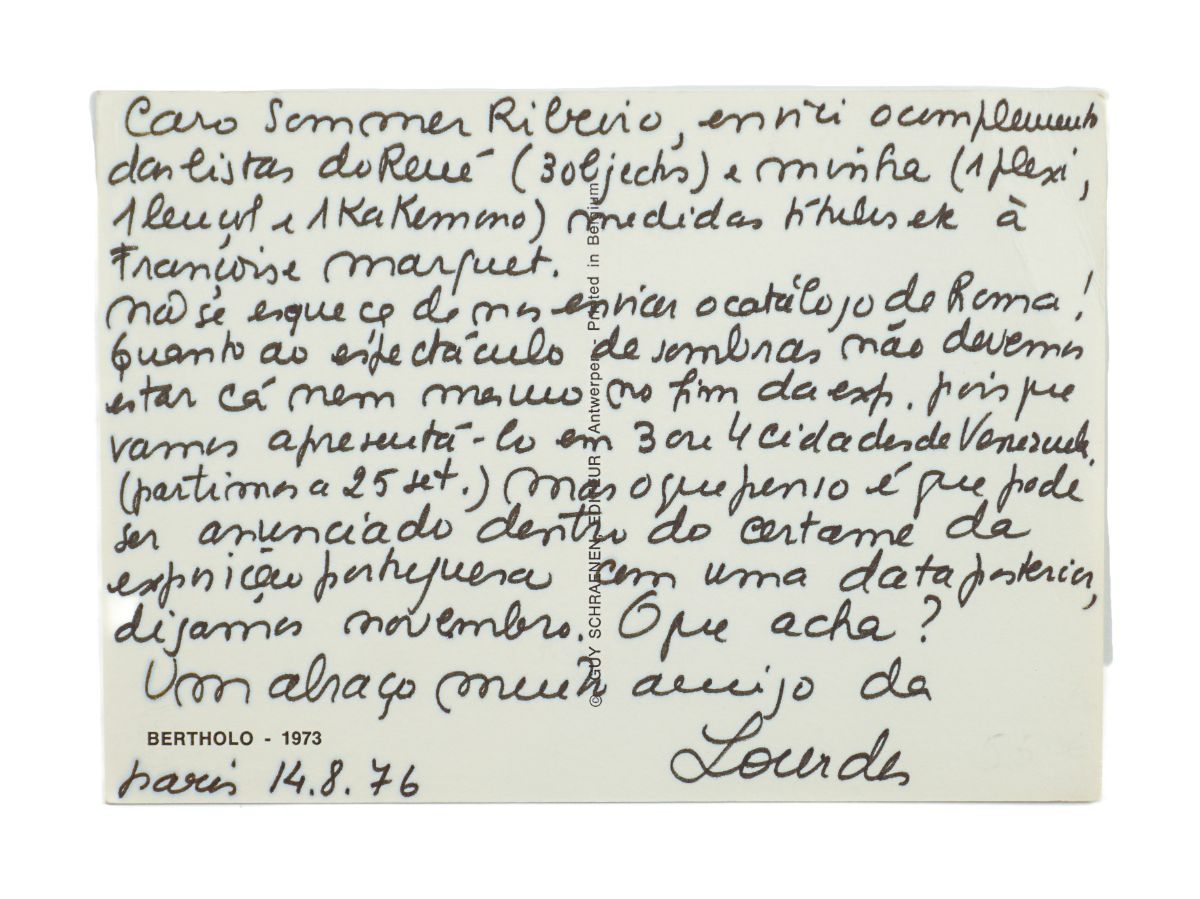 Caro Sommer Ribeiro, enviei o complemento
das listas do René (3 objectos) e minha (1 plexi,
1 lençol e 1 Kakemono) medidas títulos etc à
Françoise Marquet.
Não se esqueça de nos enviar o catálojo de Roma!
Quanto ao espectáculo de sombras não devemos
estar cá nem mesmo no fim da exp. pois que
vamos apresentá-lo em 3 ou 4 cidades de Venezuela.
(partimos a 25 set.) Mas o que penso é que pode
ser anunciado dentro do certame da
exposição portuguesa com uma data posterior,
dijamos novembro. O que acha?
Um abraço muito amijo da
Lourdes
BERTHOLO - 1973
Paris 14.8.76
© GUY SCHRAENEN, EDITEUR - Antwerpen - Printed in Belgium